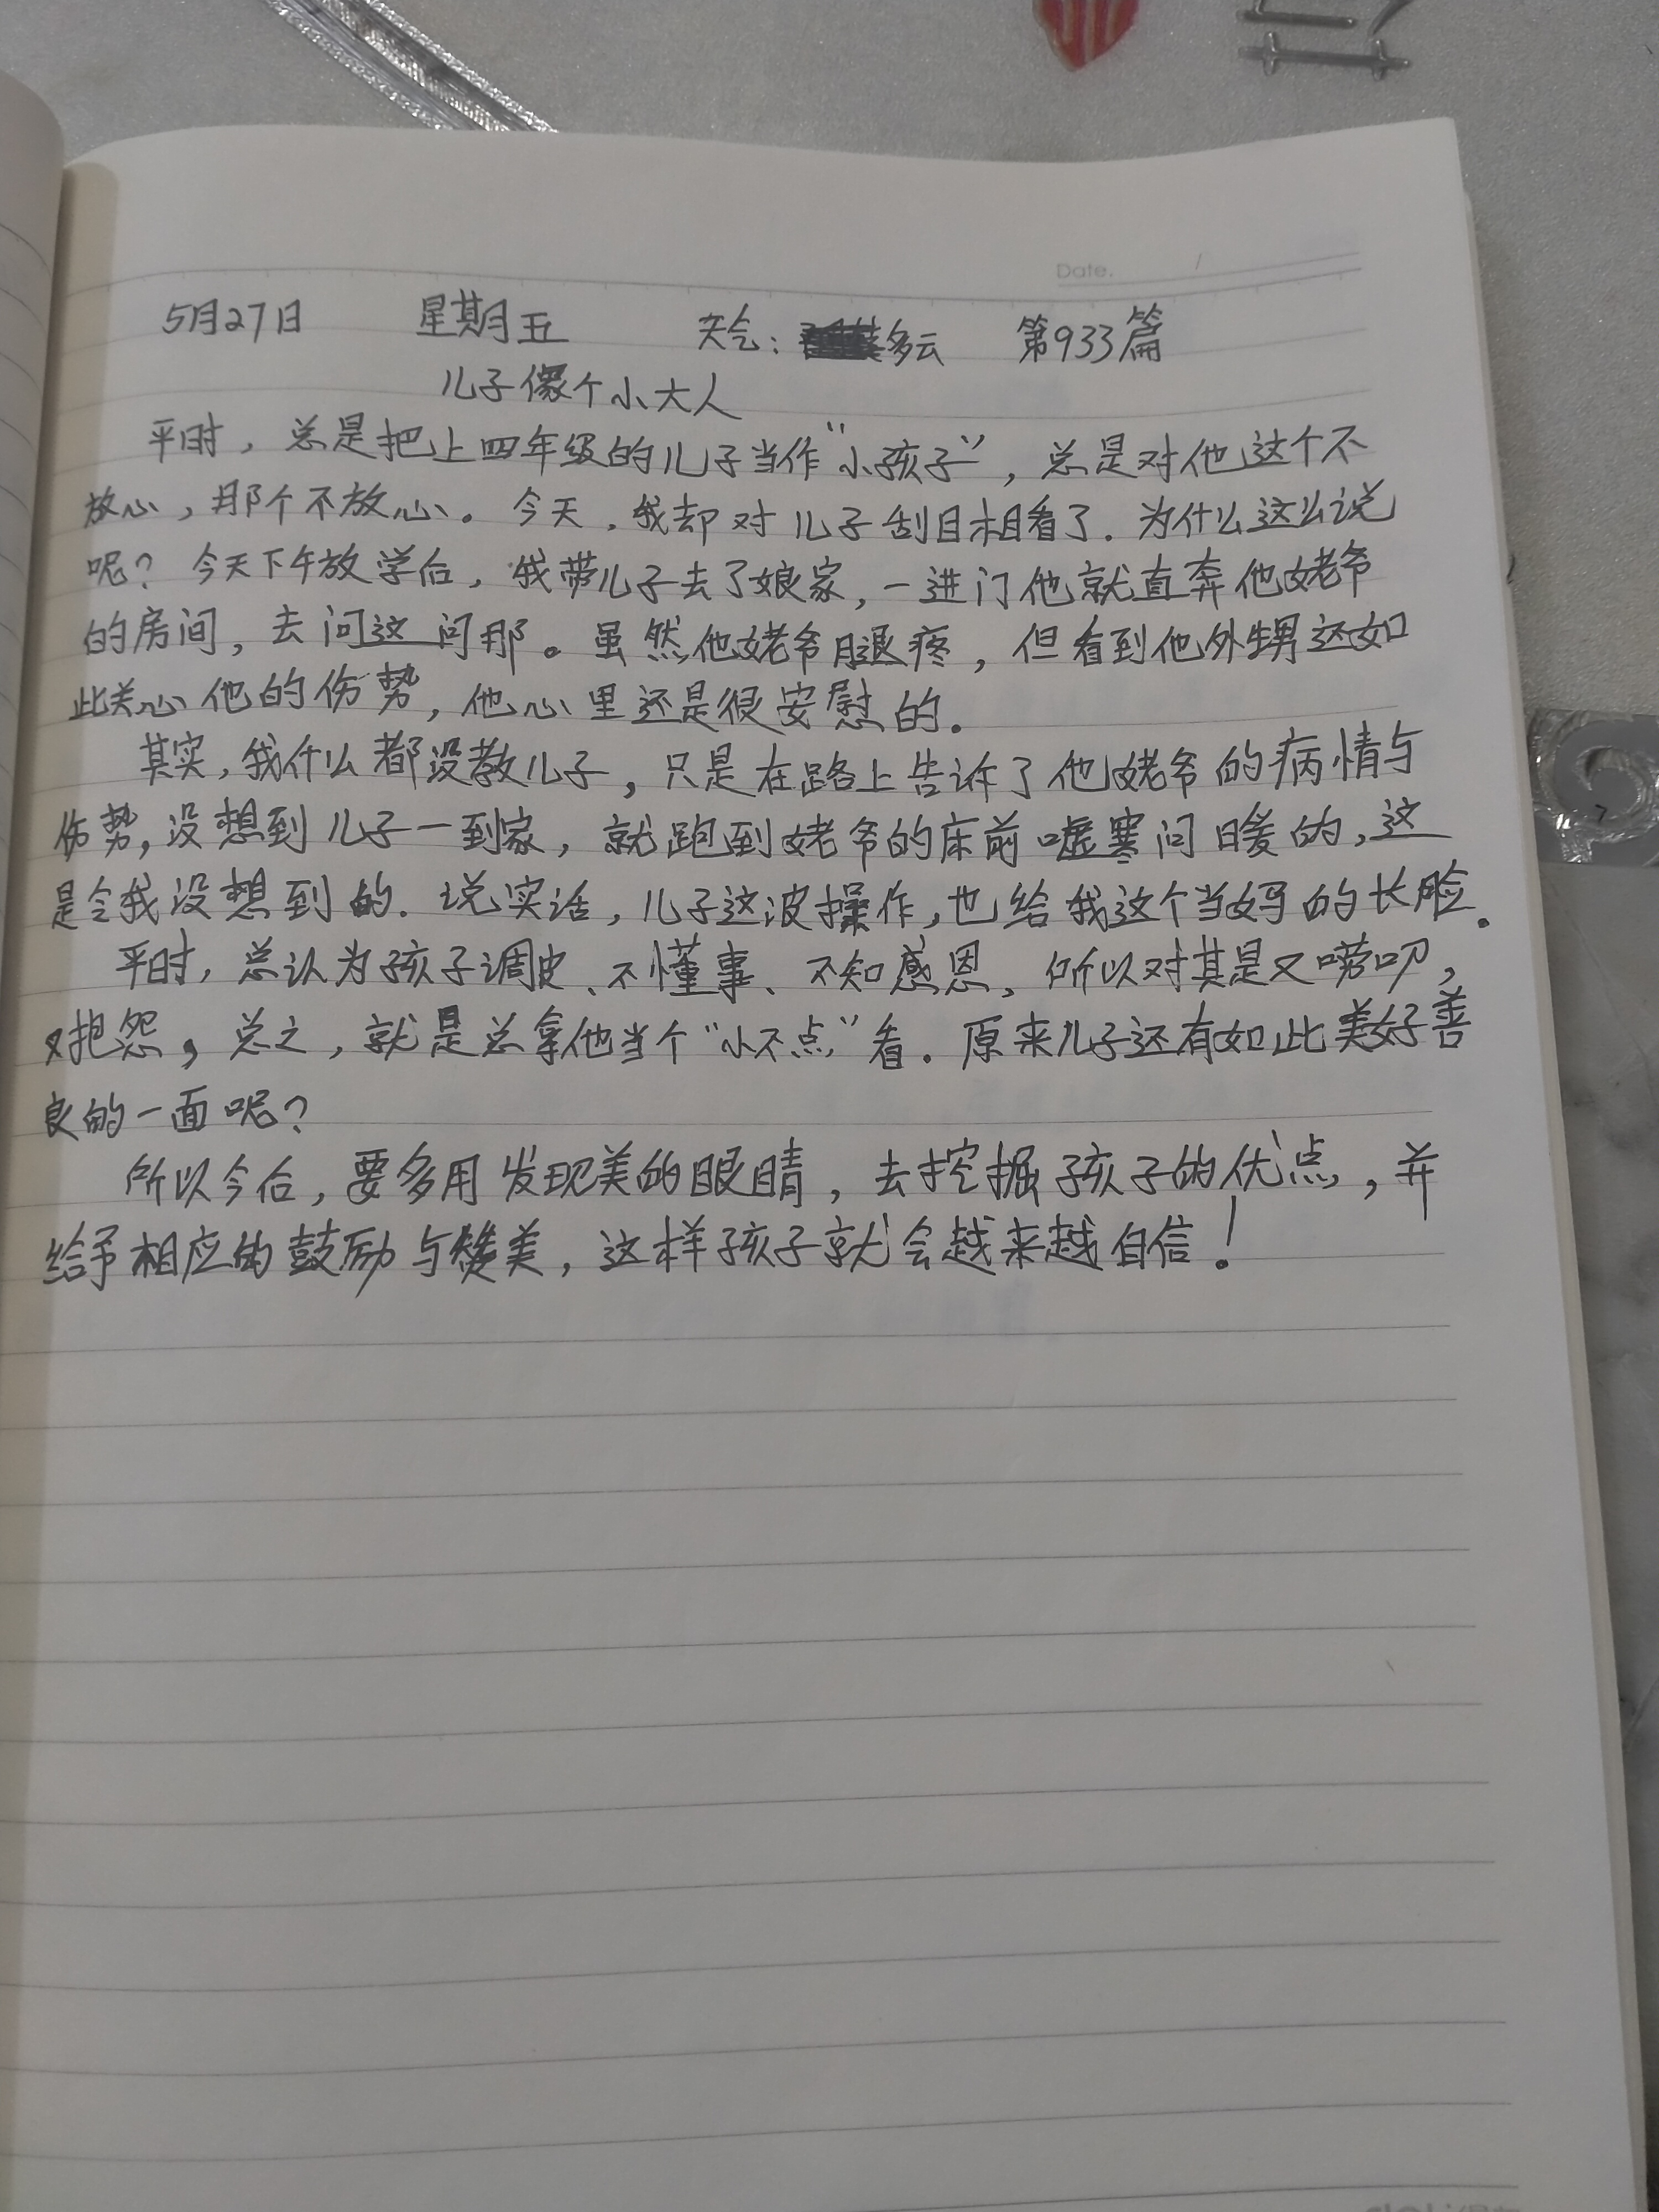 Date.
5月27日 星期五 天气：多云 第933篇
儿子像个小大人
平时，总是把上四年级的儿子当作“小孩子”，总是对他这个不
放心，那个不放心。今天，我却对儿子刮目相看了。为什么这么说
呢？今天下午放学后，我带儿子去了娘家，一进门他就直奔他姥爷
的房间，去问这问那。虽然他姥爷腿疼，但看到他外甥还如
此关心他的伤势，他心里还是很安慰的。
其实，我什么都没教儿子，只是在路上告诉了他姥爷的病情与
伤势，没想到儿子一到家，就跑到姥爷的床前嘘寒问暖的，这
是令我没想到的。说实话，儿子这波操作，也给我这个当妈的长脸。
平时，总认为孩子调皮、不懂事、不知感恩，所以对其是又唠叨，
又抱怨，总之，就是总拿他当个“小不点”看。原来儿子还有如此美好善
良的一面呢？
所以今后，要多用发现美的眼睛，去挖掘孩子的优点，并
给予相应的鼓励与赞美，这样孩子就会越来越自信！